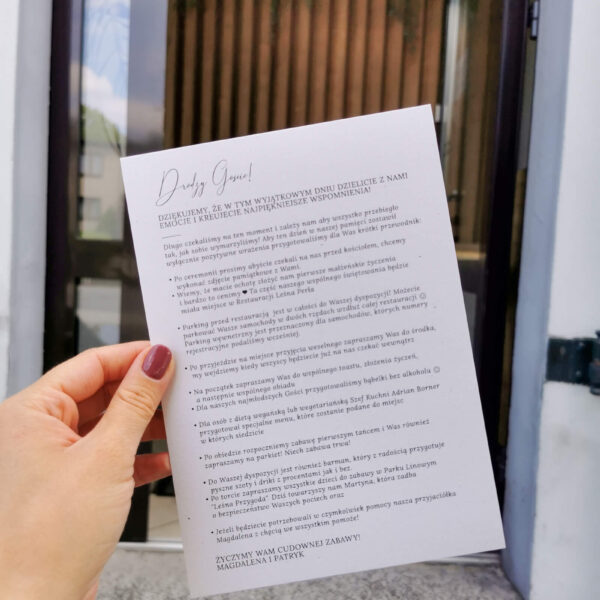 Drodzy Goście!
DZIĘKUJEMY, ŻE W TYM WYJĄTKOWYM DNIU DZIELICIE Z NAMI
EMOCJE I KREUJECIE NAJPIĘKNIEJSZE WSPOMNIENIA!
Długo czekaliśmy na ten moment i zależy nam aby wszystko przebiegło
tak, jak sobie wymarzyliśmy! Aby ten dzień w naszej pamięci zostawił
wyłącznie pozytywne wrażenia przygotowaliśmy dla Was krótki przewodnik:
• Po ceremonii prosimy abyście czekali na nas przed kościołem, chcemy
wykonać zdjęcie pamiątkowe z Wami.
• Wiemy, że macie ochotę złożyć nam pierwsze małżeńskie życzenia
i bardzo to cenimy ❤ Ta część naszego wspólnego świętowania będzie
miała miejsce w Restauracji Leśna Perła
• Parking przed restauracją jest w całości do Waszej dyspozycji! Możecie
parkować Wasze samochody w dwóch rzędach wzdłuż całej restauracji ☺
Parking wewnętrzny jest przeznaczony dla samochodów, których numery
rejestracyjne podaliśmy wcześniej.
• Po przyjeździe na miejsce przyjęcia weselnego zapraszamy Was do środka,
my wejdziemy kiedy wszyscy będziecie już na nas czekać wewnątrz
• Na początek zapraszamy Was do wspólnego toastu, złożenia życzeń,
a następnie wspólnego obiadu
• Dla naszych najmłodszych Gości przygotowaliśmy bąbelki bez alkoholu ☺
• Dla osób z dietą wegańską lub wegetariańską Szef Kuchni Adrian Borner
przygotował specjalne menu, które zostanie podane do miejsc
w których siedzicie
• Po obiedzie rozpoczniemy zabawę pierwszym tańcem i Was również
zapraszamy na parkiet! Niech zabawa trwa!
• Do Waszej dyspozycji jest również barman, który z radością przygotuje
pyszne szoty i driki z procentami jak i bez.
• Po torcie zapraszamy wszystkie dzieci do zabawy w Parku Linowym
"Leśna Przygoda" Dziś towarzyszy nam Martyna, która zadba
o bezpieczeństwo Waszych pociech oraz
• Jeżeli będziecie potrzebowali w czymkolwiek pomocy nasza przyjaciółka
Magdalena z chęcią we wszystkim pomoże!
ŻYCZYMY WAM CUDOWNEJ ZABAWY!
MAGDALENA I PATRYK